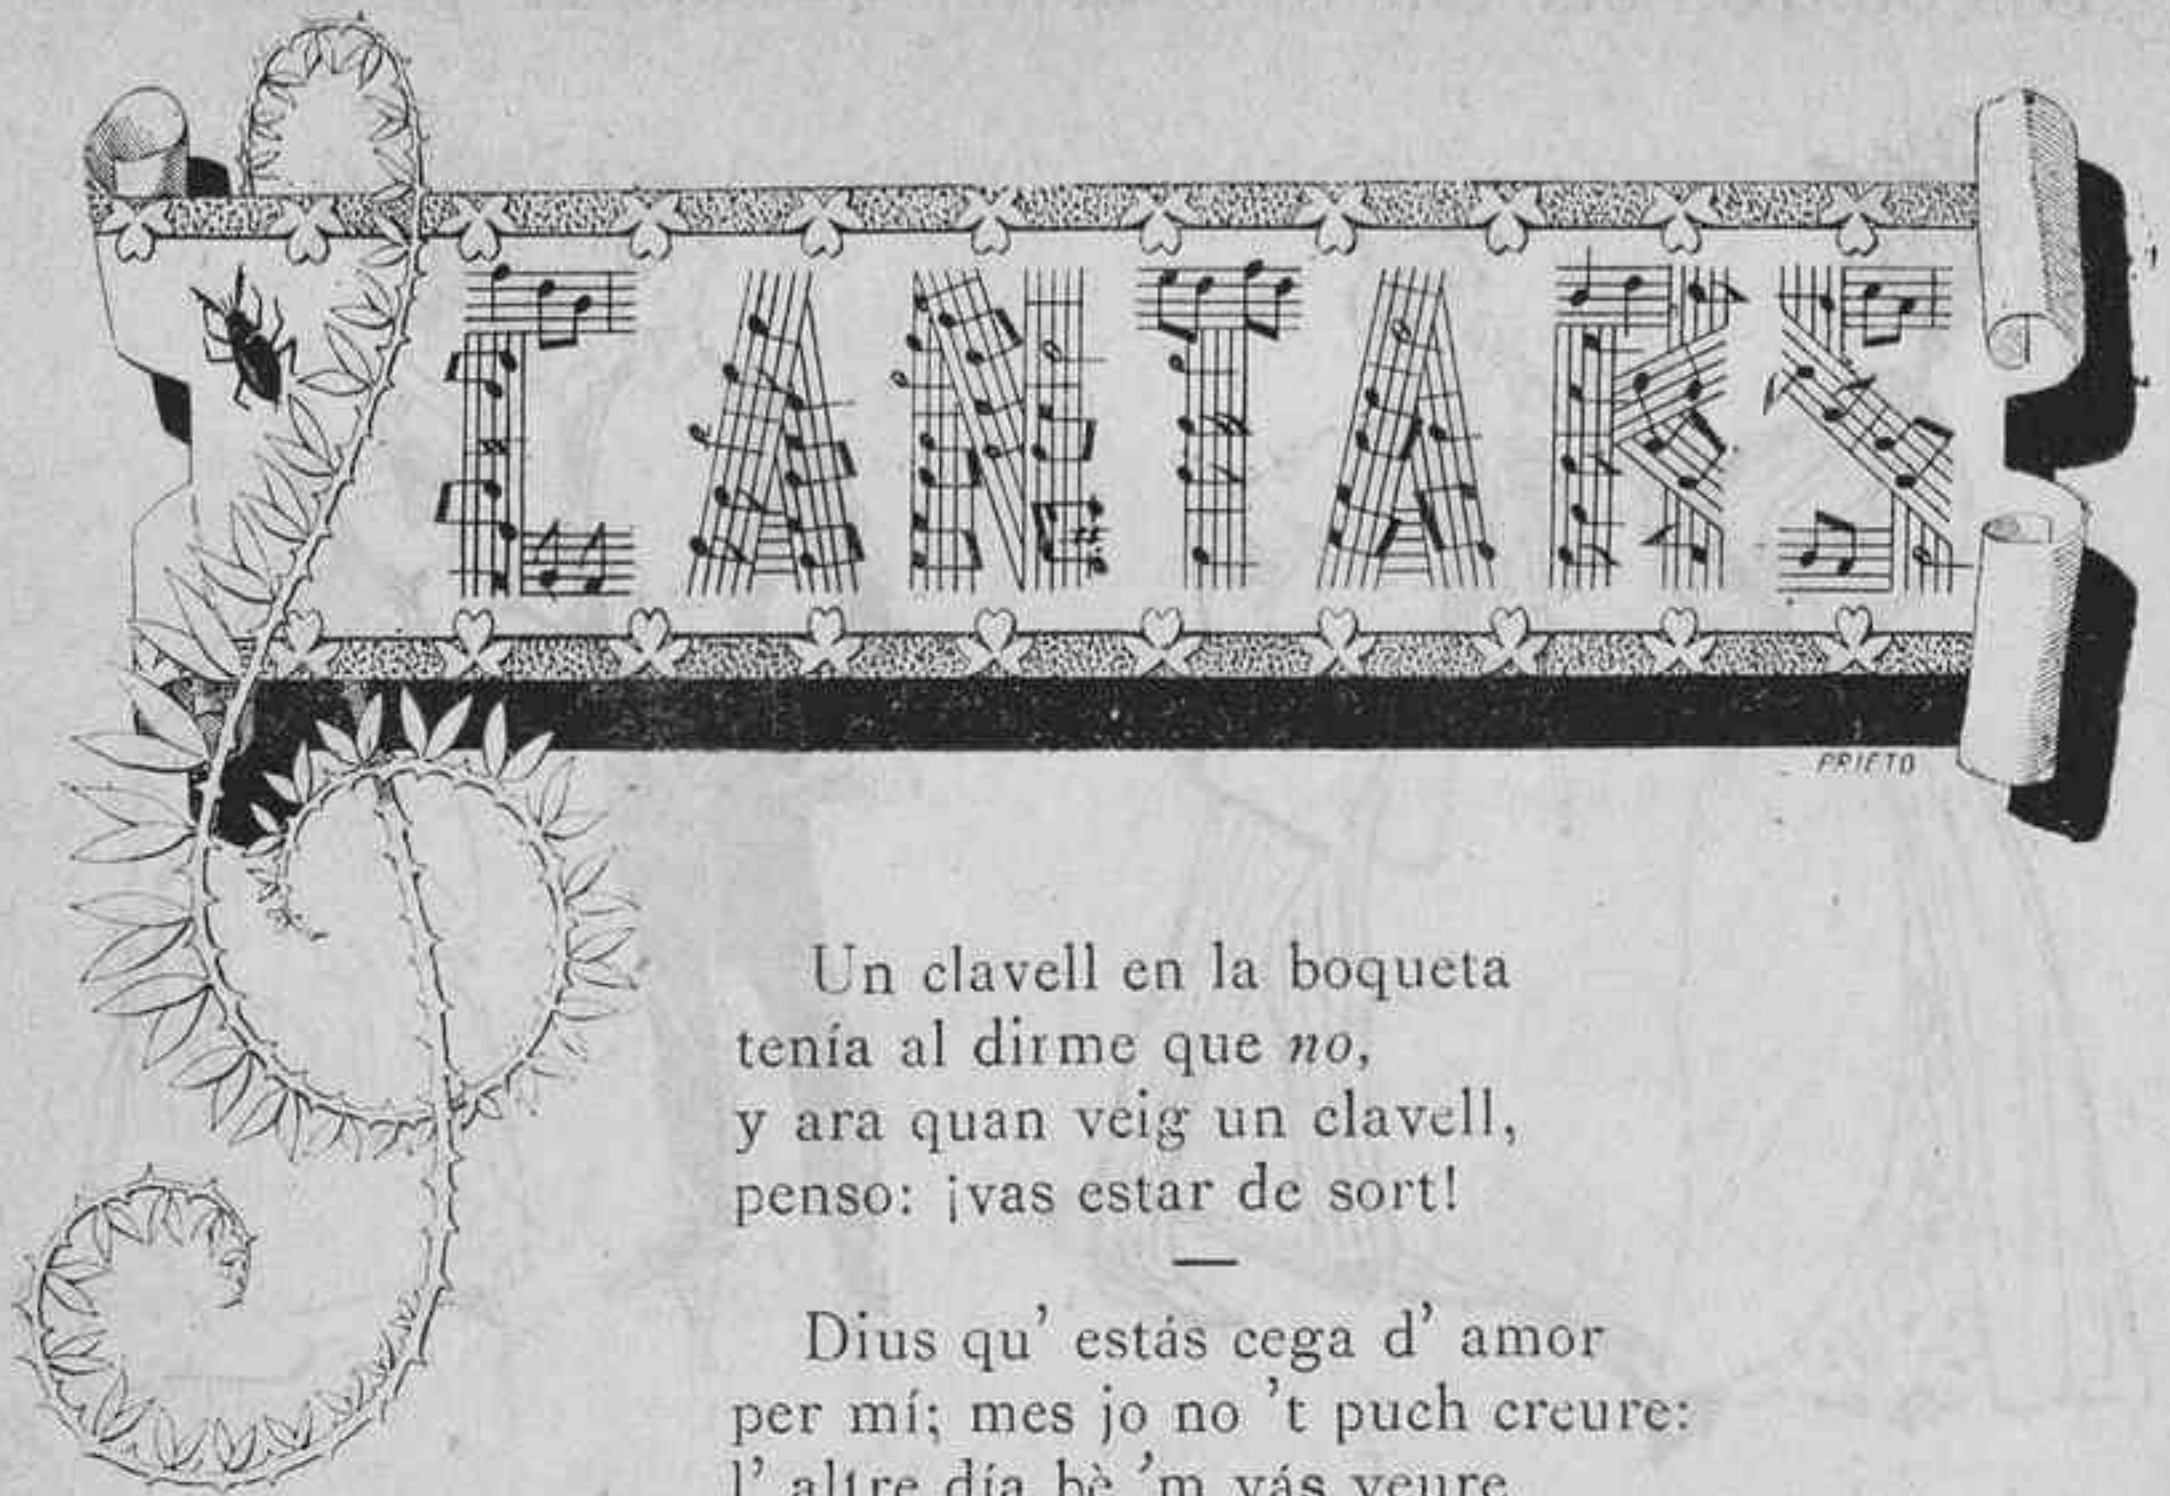 CANTARS
PRIETO
Un clavell en la boqueta
tenía al dirme que no,
y ara quan veig un clavell,
penso: ¡vas estar de sort!
—
Dius qu' estás cega d' amor
per mí; mes jo no 't puch creure:
l' altre día bè 'm vás veure